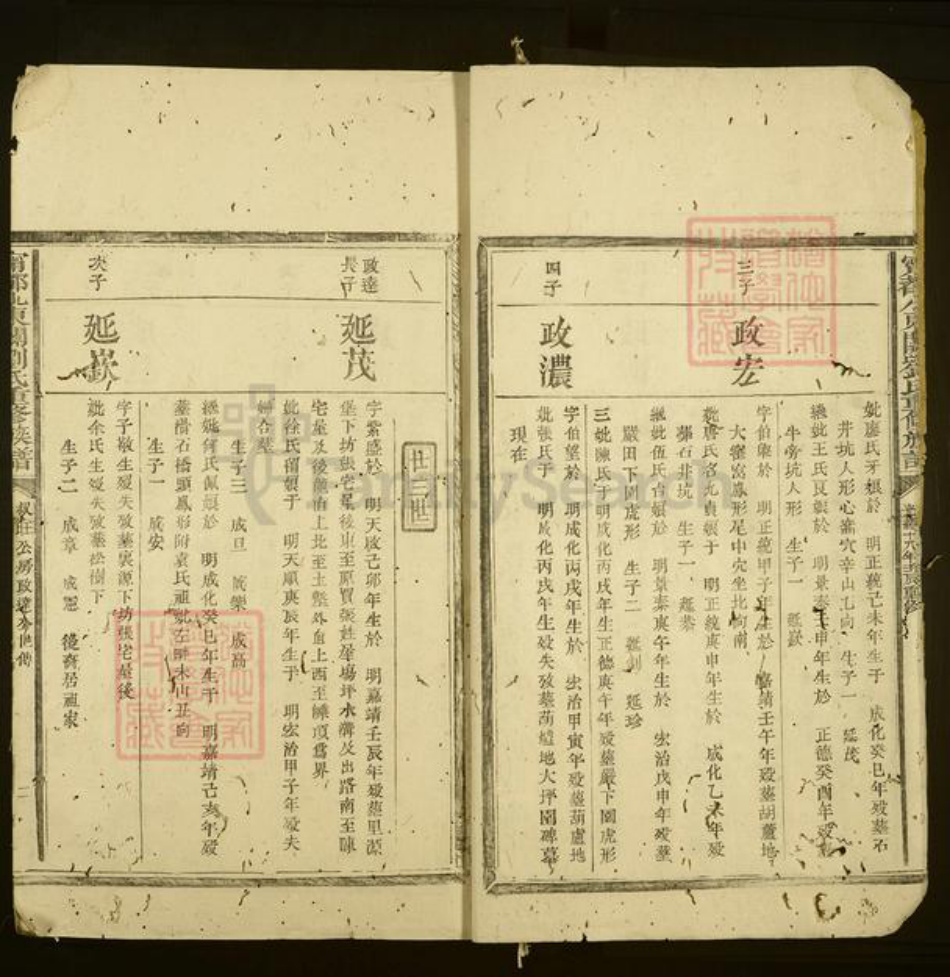 妣廖氏牙娘於 明正統己未年生于 成化癸巳年歿葬石
井坑人形心窩穴辛山乙向 生子一 延茂
繼妣王氏艮娘於 明景泰壬申年生於 正德癸酉年歿葬
牛旁坑人形 生子一 延嶽
三子
政宏
字伯榮於 明正統甲子年生於 嘉靖壬午年歿葬胡蘆地
大窩鳳形足中穴坐北向南
妣唐氏名九貞娘于 明正統庚申年生於 成化乙未年歿
葬石井坑 生子一 延恭
繼妣伍氏台娘於 明景泰庚午年生於 宏治戊申年歿葬
嚴田下園虎形 生子二 延珍
三妣陳氏于明成化丙戌年生正德庚午年歿葬嚴下園虎形
四子
政濃
字伯望於 明成化丙戌年生於 宏治甲寅年歿葬葫盧地
妣張氏于 明成化丙戌年生歿失攷葬葫蘆地大坪園碑墓
現在
廿三世
政達
長子
延茂
字紫盛於 明天啟己卯年生於 明嘉靖壬辰年歿葬里源
堡下坊張宅屋後東至原買張姓屋場坪水溝及出路南至陳
宅屋及後龍山上北至土塹外自上西至崠頂為界
妣徐氏留娘于 明天順庚辰年生于 明宏治甲子年歿夫
婦合墓
生子三 成旦 成樂 成高
繼妣何氏佩娘於 明成化癸巳年生于 明嘉靖己亥年歿
葬滑石橋頭鳳形附袁氏祖妣左畔未山丑向
生子一 成安
次子
延嶽
字子敬生歿失攷葬裏源下坊張宅屋後
妣余氏生歿失攷葬松樹下
生子二 成章 成憲 後裔居祖家
叔旺公房政達公世傳
二